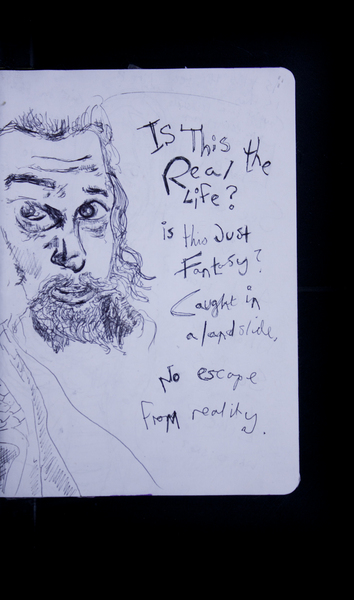 Is This the
Real
Life?
is this Just
Fantasy?
Caught in
a landslide,
No escape
From reality.